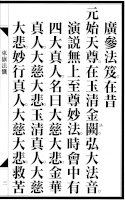 廣參法筵在昔
元始天尊在玉清金闕弘大法音
演說無上至尊妙法時會中有
四大真人名曰大慈大悲金華
真人大慈大悲玉清真人大慈
大悲妙行真人大慈大悲救苦